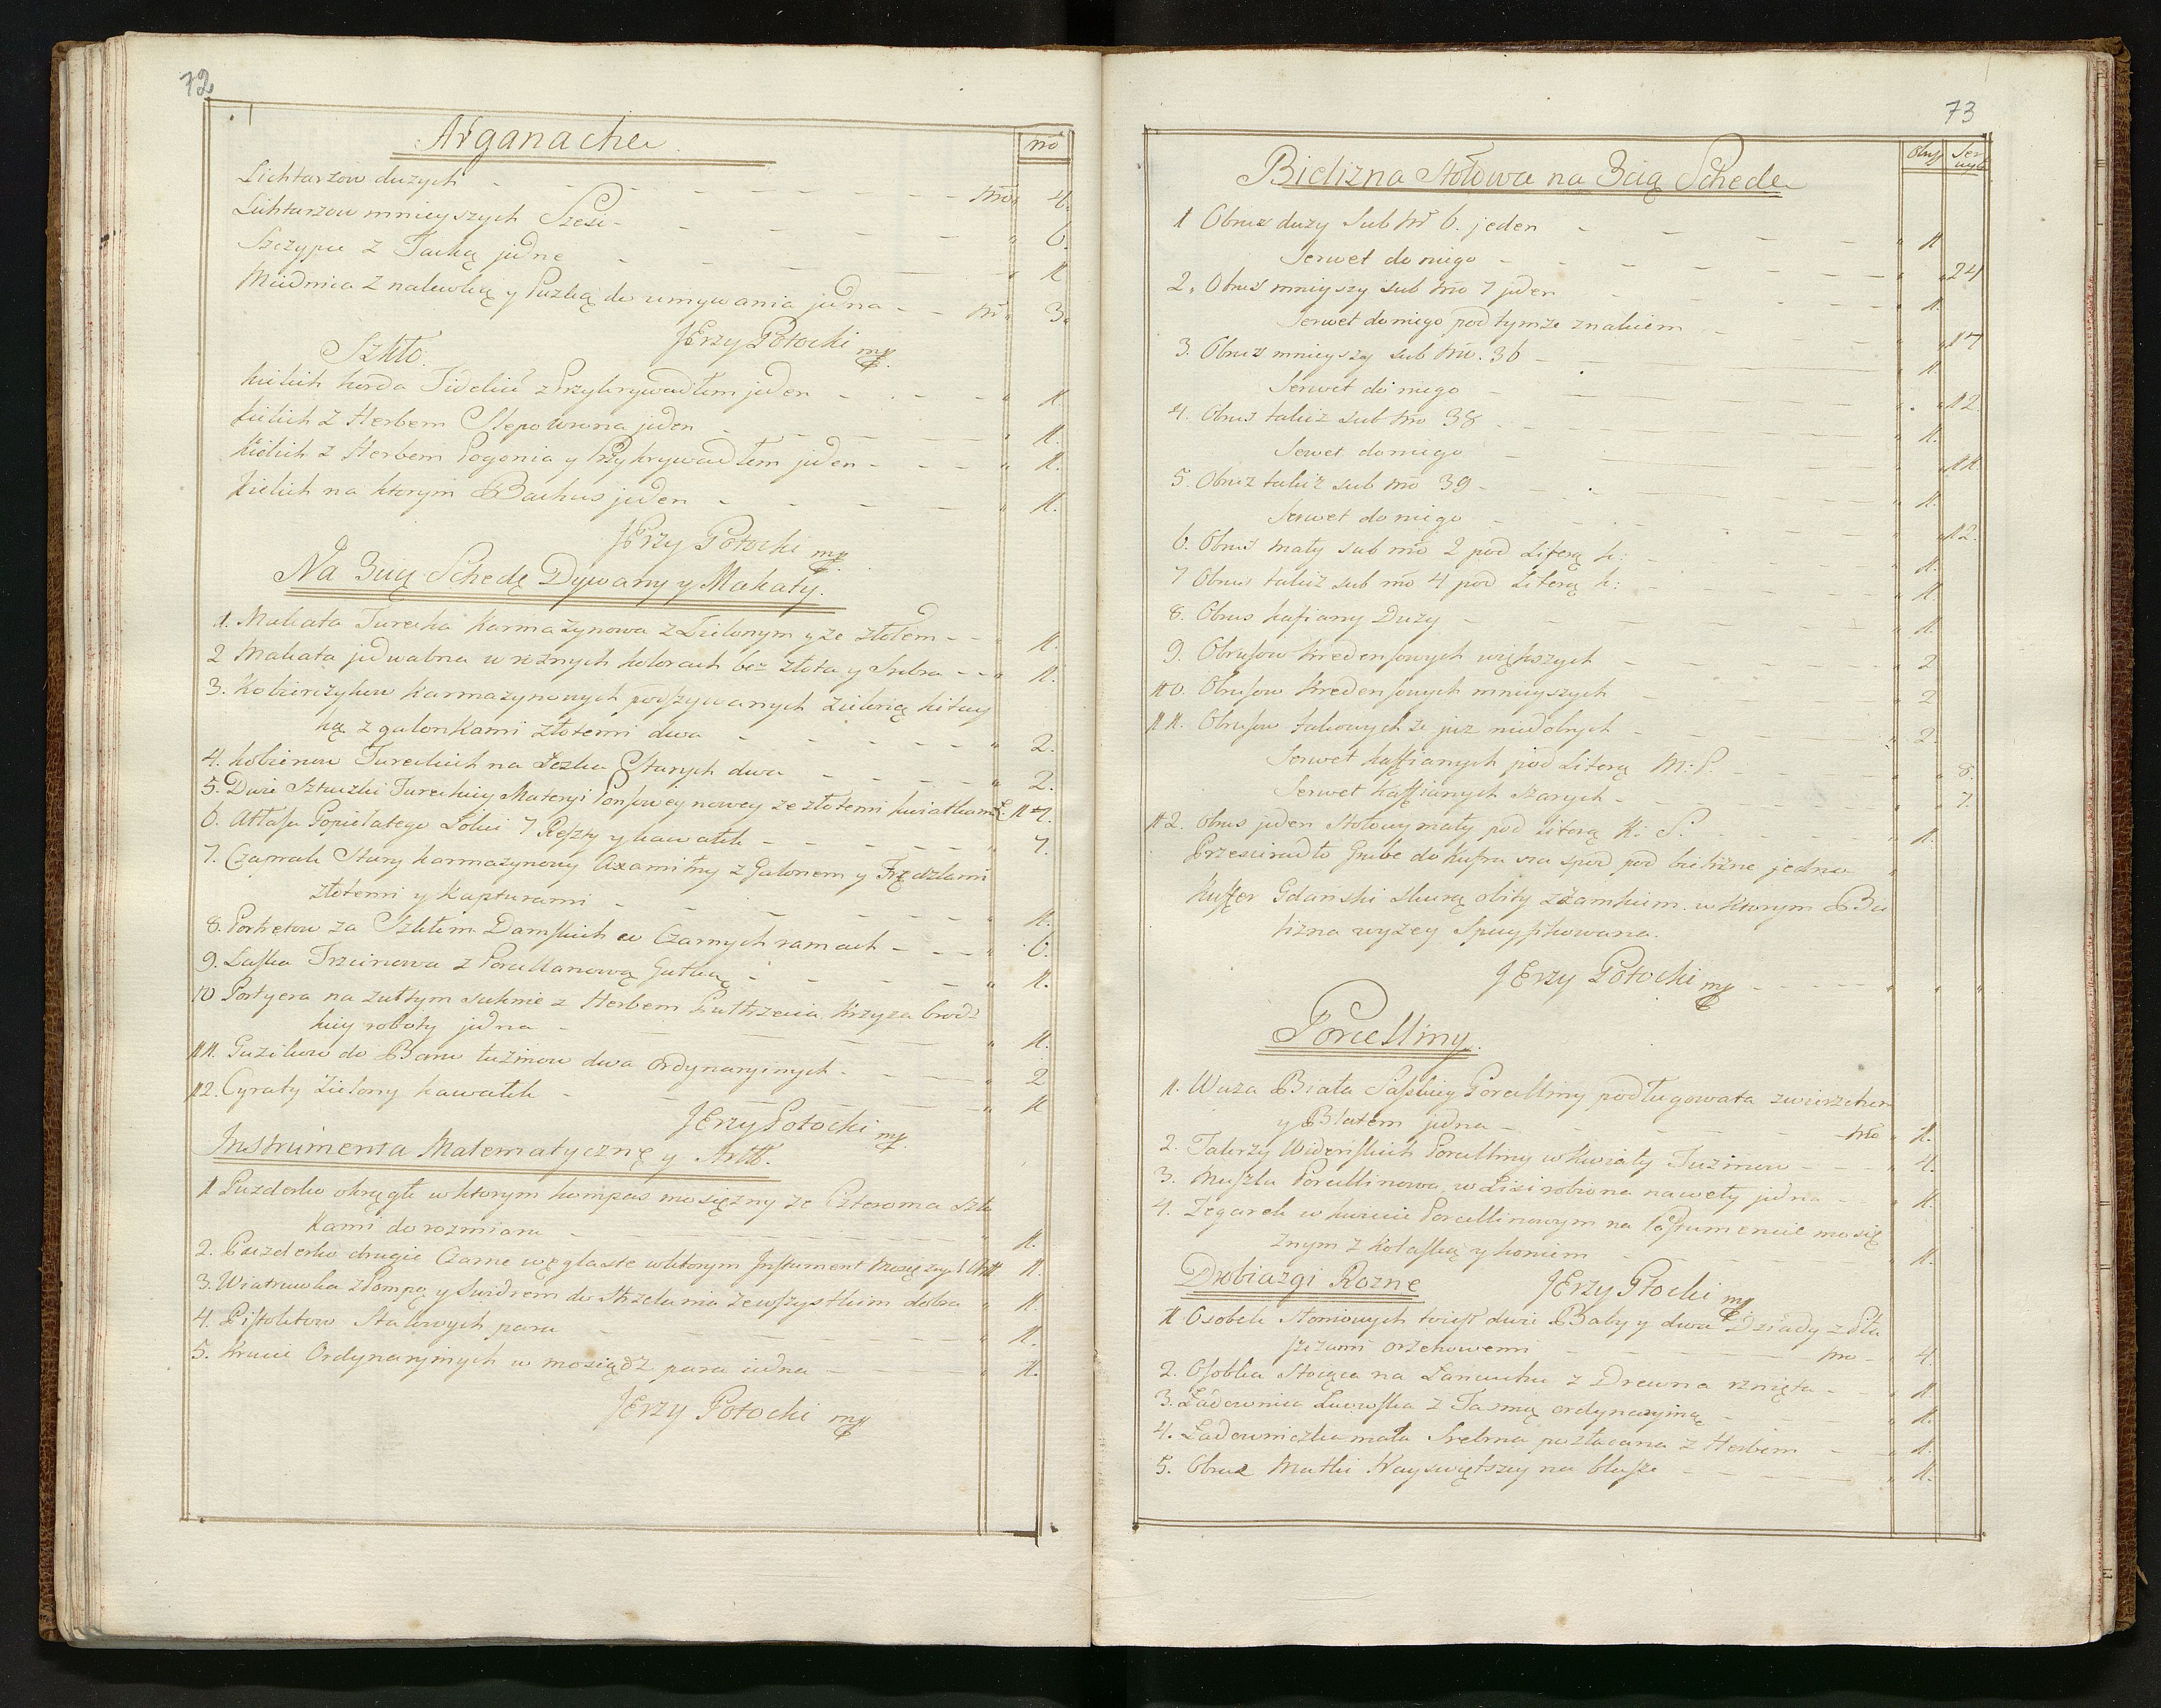 72
Arganache
Nro
Lichtarzow duzych - - - Nro 4.
Lichtarzow mnieyszych Szesc - - - " 6.
Szczypce z Tacką jedne - - - " 1
Miednica z nalewką y Puzką do umywania jedna - - Nr 3.
JErzy Potocki mp
Szkło.
Kielich horda Fidelis z Przykrywadłem jeden - - - " 1.
Kielich z Herbem Slepowrona jeden - - - " 1.
Kielich z Herbem Pogonia y Przykrywadłem jeden - - - " 1.
Kielich na ktorym Bachus jeden - - - " 1.
JErzy Potocki mp
Na 3cią Schedę Dywany y Makaty.
1. Makata Turecka Karmazynowa z Zielonym y ze złotem - - " 1.
2 Makata jedwabna w roznych kolorach bez złota y Srebra - - " 1.
3. Kobierczykow Karmazynowych podszywanych zielonią kitay
ką z galonkami złotemi dwa - - - " 2.
4. Kobierow Tureckich na Łozka Starych dwa - - - " 2.
5. Dwie Sztuczki Tureckiey Materyi Ponsowey nowey ze złotemi kwiatkami Ł. 14.
6. Atłasu Popielatego Łokci 7 Reszty y kawałek - - - " 7.
7. Czaprak Stary karmazynowy Axamitny z Galonem y Frędzlami
złotemi y Kapturami - - - " 1.
8. Portretow za Szkłem Damskich w Czarnych ramach - - - " 6.
9. Laska Trzcinowa z Porcellanową Gałką - - - " 1.
10 Portyera na zułtym suknie z Herbem Krzyza brodz
kiey roboty jedna - - - " 1.
11. Guzikow do tuzinow dwa ordynaryinych - - - " 2
12. Cyraty Zielony kawałek - - - " 1
JErzy Potocki mp
Instrumenta Matematycznę y Artll.
1 Puzderko okrągłe w ktorym kompas mosięzny ze Czteroma sztu
kami do rozmiaru - - - " 1.
2. Puzderko drugie Czarne węglaste w ktorym Instrument Mosięzny Artll 1.
3. Wiatruwka z Pompą y Swidrem do Strzelania ze wszystkim dobra " 1.
4. Pistoletow Stalowych para - - - " 1.
5. Krucic Ordynaryinych w mosiądz para iedna - - - " 1.
JErzy Potocki mp
73
Bielizna Stołowa na 3cią Schede
Obrus Ser wyt
1 Obrus duzy Sub Nr 6. jeden - - - " 1
Serwet do niego - - - " 24
2. Obrus mnieyszy sub Nro 7 jeden - - - " 1.
Serwet do niego pod tymze znakiem - - - " 17
3. Obrus mnieyszy sub Nro. 36 - - - " 1.
Serwet do niego - - - " 12
4. Obrus takiz sub Nro 38 - - - " 1.
Serwet do niego - - - " 11.
5. Obrus takiz sub Nro 39 - - - " 1.
Serwet do niego - - - " 12.
6. Obrus mały sub nro 2 pod Literą k: - - - " 1.
7 Obrus takiz sub nro 4 pod Literą k: - - - " 1
8. Obrus kafiany Duzy - - - " 1.
9. Obrusow kredensowych większych - - - " 2
10. Obrusow kredensowych mnieyszych - - - " 2
11. Obrusow takowych ze juz niedobrych - - - " 2.
Serwet kaffianych pod Literą M: P. - - - " 8.
Serwet kaffianych szarych - - - " 7.
12. Obrus jeden Stołowy mały pod Literą K: S. - - - " 1.
Przescieradło Grube do kufra na spod pod bieliznę jedno "
Kuffer Gdanski skurą obity z zamkiem w ktorym Bie
lizna wyzey Specyfikowana.
JErzy Potocki mp
Porcelliny.
1. Waza Biała Saskiey Porcelliny podługowata z wierzchem
y Blatem jedna - - - Nro 1.
2. Talerzy Widenskich Porcelliny w kwiaty Tuzinow - - - " 4.
3. Muszla Porcellinowa w Lisc robiona na wety jedna - - " 1.
4. Zegarek w kurcie Porcellinowym na Postumencie mosię
znym z Kolaską y koniem - - - " 1.
JErzy Ptocki mp
Drobiazgi Rozne
1 Osobek Słoniowych dwie Baby y dwa Dziady z Pła
szczami orzehowemi - - - Nro 4.
2. Osobka Stoiąca na Lancuchu z Drewna rznięta - - " 1
3. Ładownica Lwowska z Tasmą ordynaryiną - - - " 1.
4. Ładowniczka mała Srebrna pozłacana z Herbem - - " 1.
5. Obraz Matki Nayswiętszey na blasze - - - " 1.